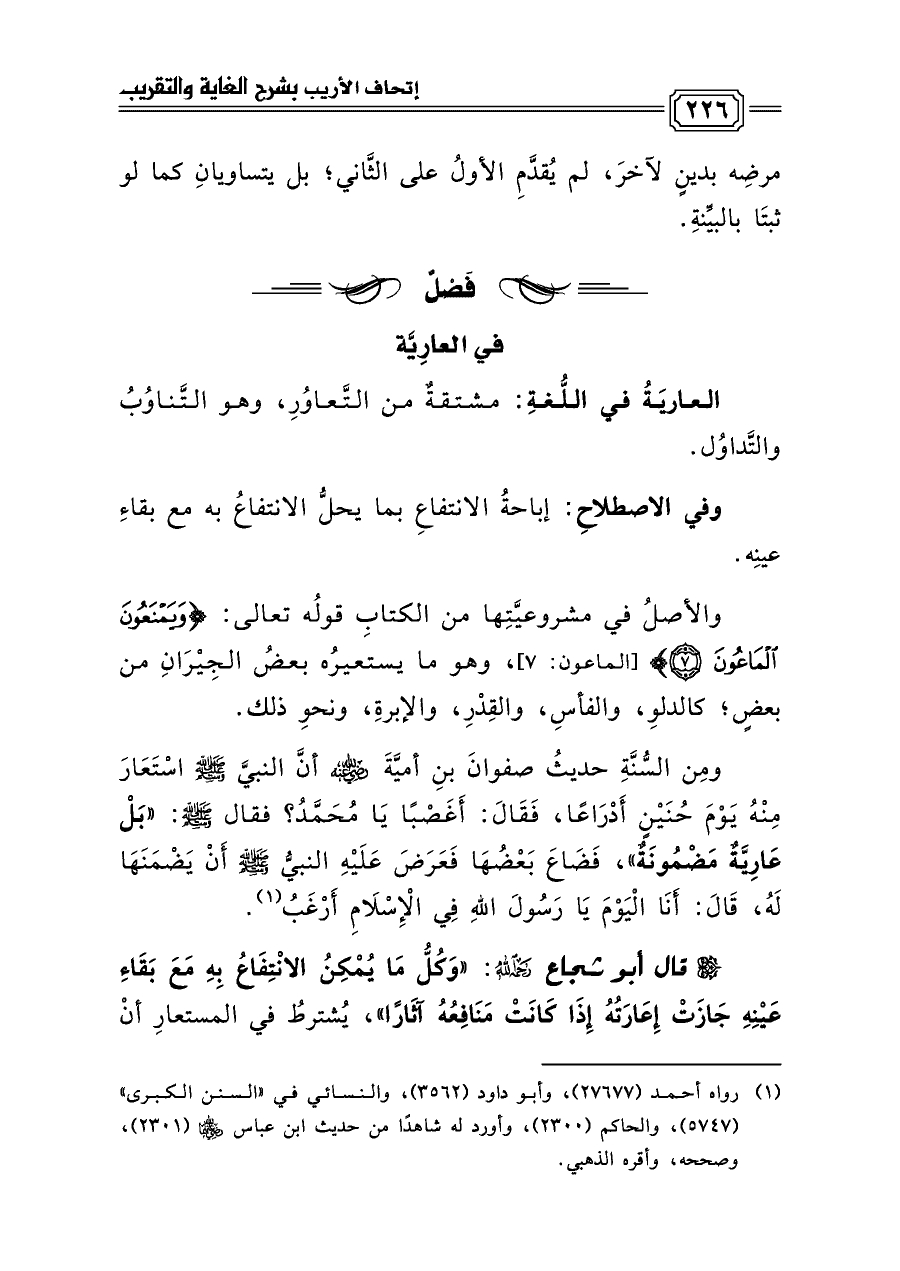 إتحاف الأريب بشرح الغاية والتقريب
٢٢٦
مرضِه بدينٍ لآخرَ، لم يُقدَّمِ الأولُ على الثَّاني؛ بل يتساويانِ كما لو
ثبتَا بالبيِّنةِ.
فَصْلٌ
في العارِيَّة
العاريَةُ في اللُّغةِ: مشتقةٌ من التَّعاوُرِ، وهو التَّناوُبُ
والتَّداوُل.
وفي الاصطلاحِ: إباحةُ الانتفاعِ بما يحلُّ الانتفاعُ به مع بقاءِ
عينِه.
والأصلُ في مشروعيَّتِها من الكتابِ قولُه تعالى: ﴿وَيَمْنَعُونَ
ٱلْمَاعُونَ ٧﴾ [الماعون: ٧]، وهو ما يستعيرُه بعضُ الجِيْرَانِ من
بعضٍ؛ كالدلوِ، والفأسِ، والقِدْرِ، والإبرةِ، ونحوِ ذلك.
ومِن السُّنَّةِ حديثُ صفوانَ بنِ أميَّةَ رضي الله عنه أنَّ النبيَّ ﷺ اسْتَعَارَ
مِنْهُ يَوْمَ حُنَيْنٍ أَدْرَاعًا، فَقَالَ: أَغَصْبًا يَا مُحَمَّدُ؟ فقال ﷺ: «بَلْ
عَارِيَّةٌ مَضْمُونَةٌ»، فَضَاعَ بَعْضُهَا فَعَرَضَ عَلَيْهِ النبيُّ ﷺ أَنْ يَضْمَنَهَا
لَهُ، قَالَ: أَنَا الْيَوْمَ يَا رَسُولَ اللهِ فِي الْإِسْلَامِ أَرْغَبُ(١).
قال أبو شجاع رحمه الله: «وَكُلُّ مَا يُمْكِنُ الانْتِفَاعُ بِهِ مَعَ بَقَاءِ
عَيْنِهِ جَازَتْ إِعَارَتُهُ إِذَا كَانَتْ مَنَافِعُهُ آثَارًا»، يُشترطُ في المستعارِ أنْ
(١) رواه أحمد (٢٧٦٧٧)، وأبو داود (٣٥٦٢)، والنسائي في «السنن الكبرى»
(٥٧٤٧)، والحاكم (٢٣٠٠)، وأورد له شاهدًا من حديث ابن عباس رضي الله عنهما (٢٣٠١)،
وصححه، وأقره الذهبي.